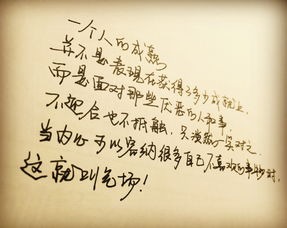 一个人的成熟
并不是表现在获得了多少成就上,
而是面对那些厌恶的人和事
不迎合也不抵触,只淡然笑对之
当内心可以容纳很多自己不喜欢的事物时,
这就叫气场!